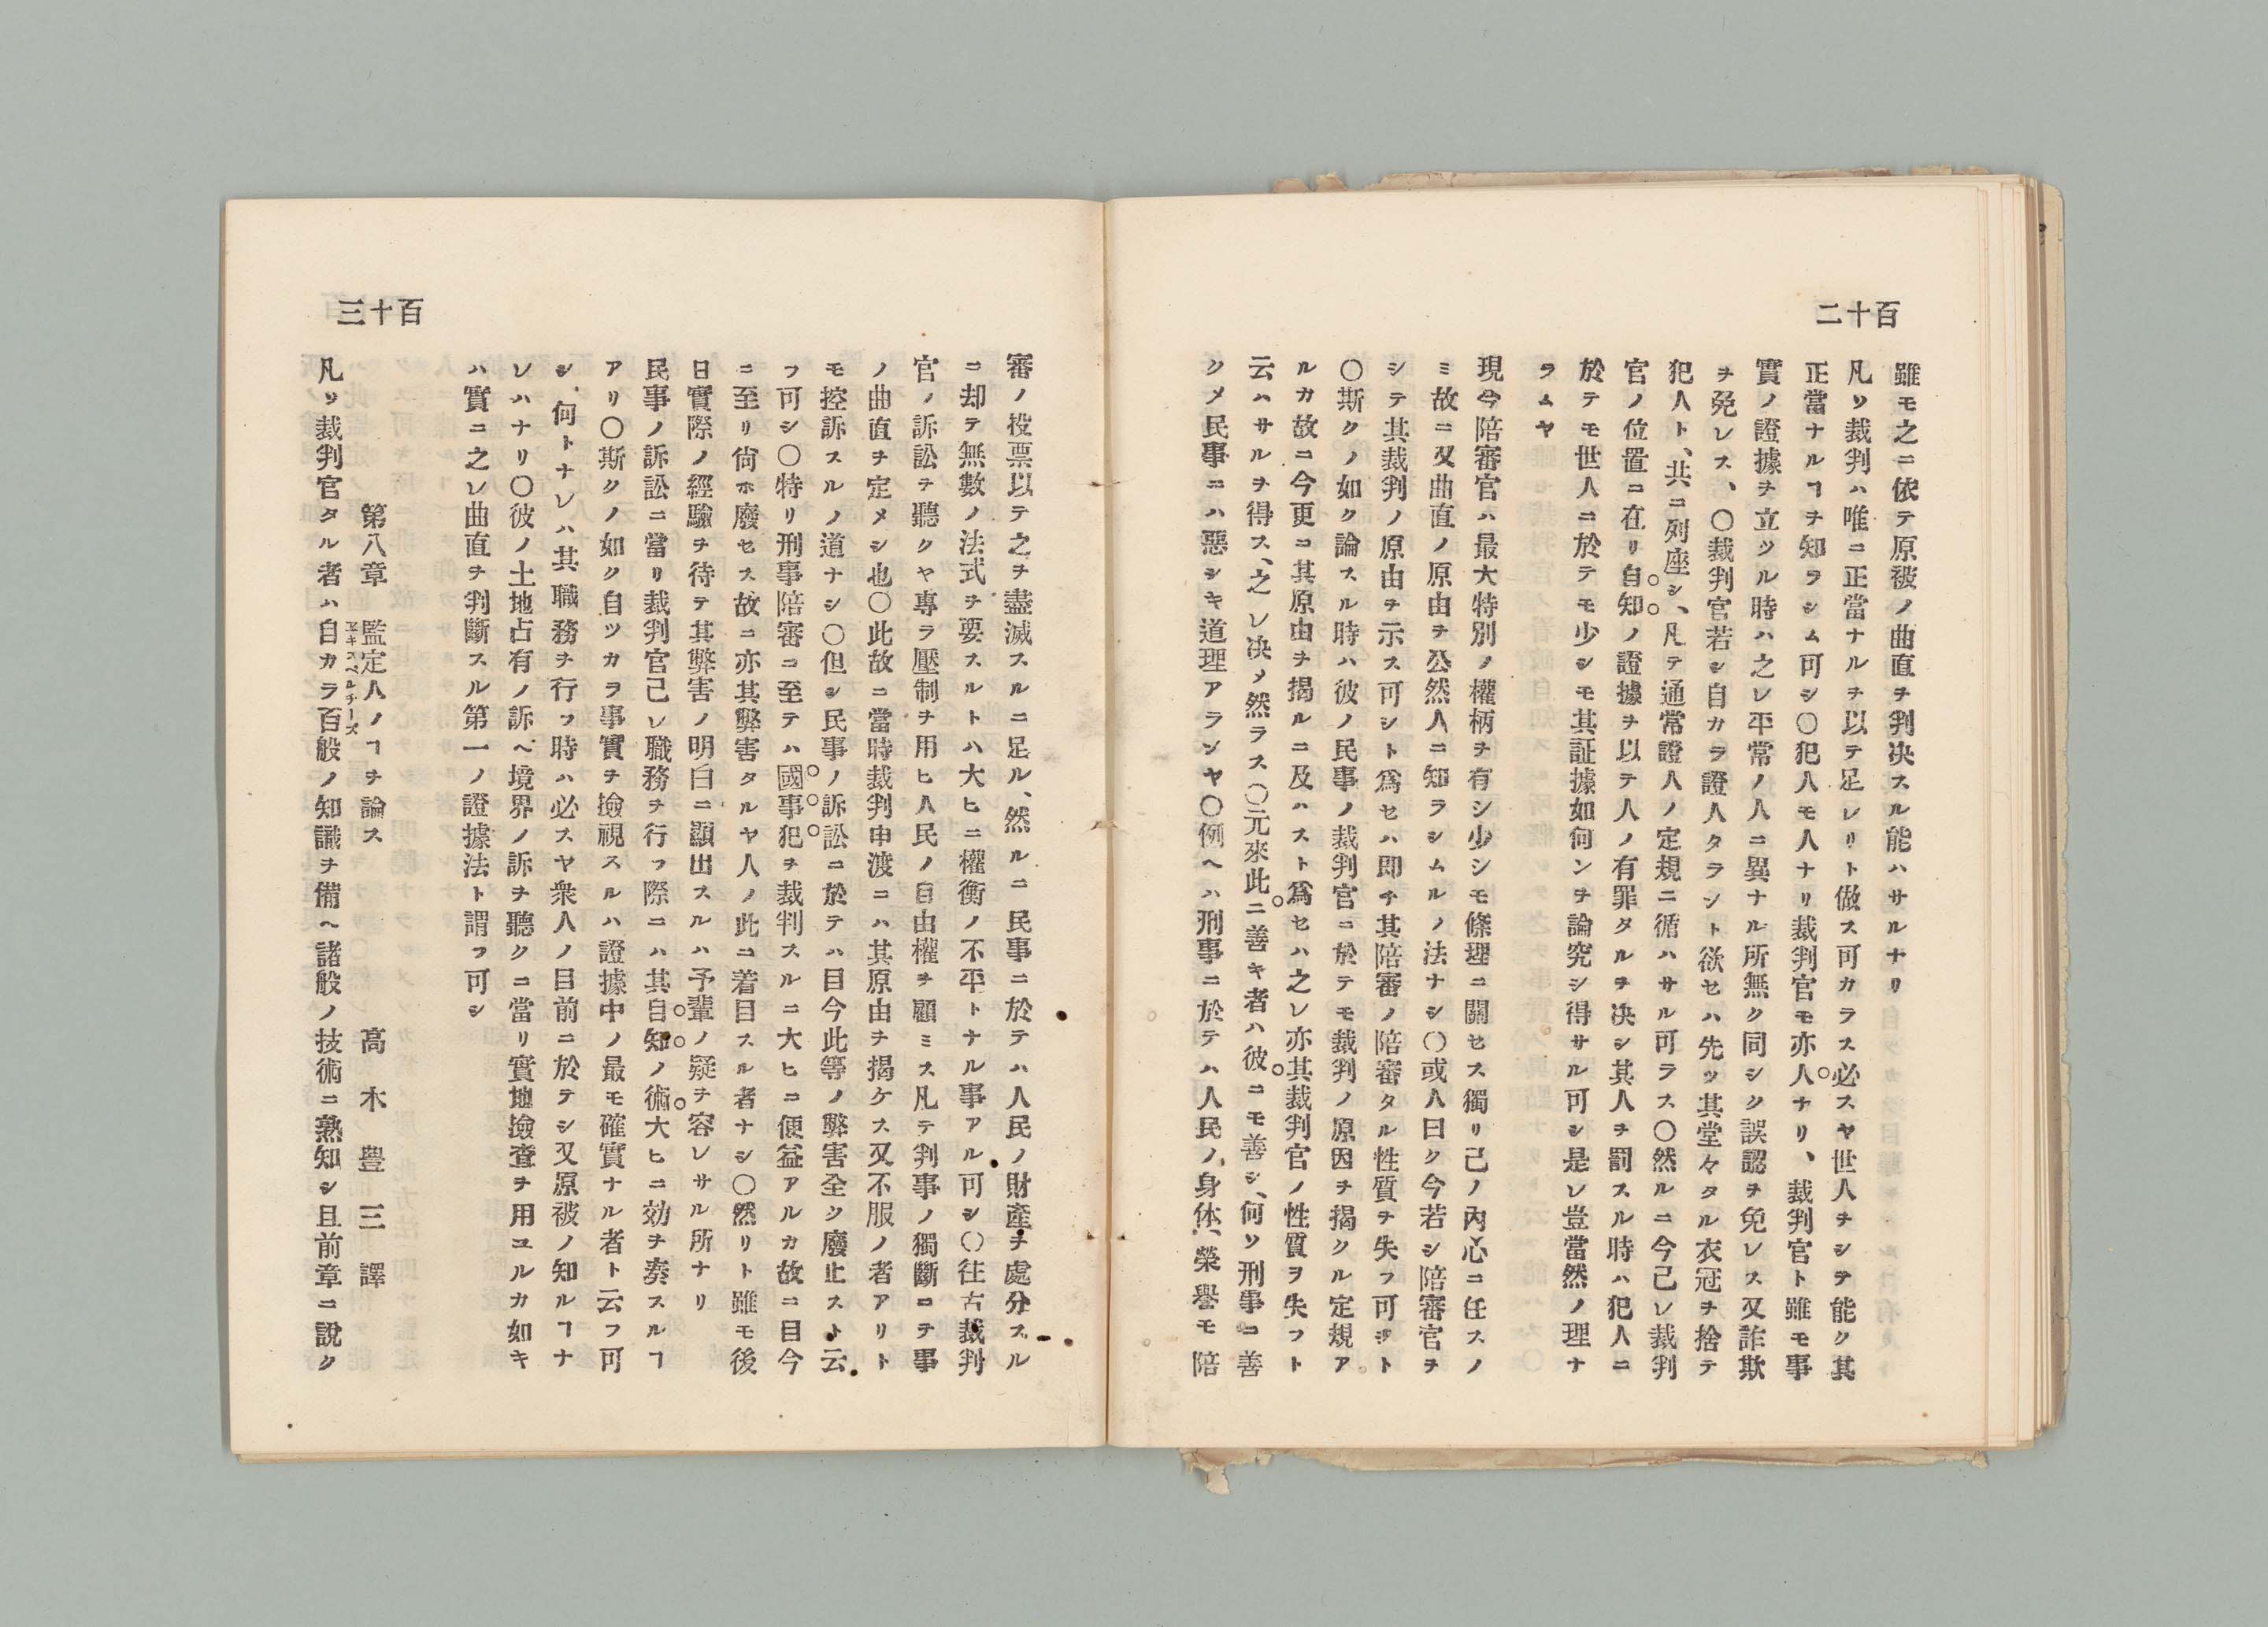 百十二
雖モ之ニ依テ原被ノ曲直ヲ判决スル能ハサルナリ
凡ソ裁判ハ唯ニ正當ナルヲ以テ足レリト做ス可カラス必スヤ世人ヲシテ能ク其
正當ナルヿヲ知ラシム可シ〇犯人モ人ナリ裁判官モ亦人ナリ、裁判官ト雖モ事
實ノ證據ヲ立ツル時ハ之レ平常ノ人ニ異ナル所無ク同シク誤認ヲ免レス又詐欺
ヲ免レス、〇裁判官若シ自カラ證人タラント欲セハ先ッ其堂々タル衣冠ヲ捨テ
犯人ト、共ニ列座シ、凡テ通常證人ノ定規ニ循ハサル可ラス〇然ルニ今己レ裁判
官ノ位置ニ在リ自知ノ證據ヲ以テ人ノ有罪タルヲ决シ其人ヲ罰スル時ハ犯人ニ
於テモ世人ニ於テモ少シモ其証據如何ンヲ論究シ得サル可シ是レ豈當然ノ理ナ
ラムヤ
現今陪審官ハ最大特別ノ權柄ヲ有シ少シモ條理ニ關セス獨リ己ノ内心ニ任スノ
ミ故ニ又曲直ノ原由ヲ公然人ニ知ラシムルノ法ナシ〇或人曰ク今若シ陪審官ヲ
シテ其裁判ノ原由ヲ示ス可シト爲セハ即チ其陪審ノ陪審タル性質ヲ失フ可シト
〇斯クノ如ク論スル時ハ彼ノ民事ノ裁判官ニ於テモ裁判ノ原因ヲ揭クル定規ア
ルカ故ニ今更ニ其原由ヲ揭ルニ及ハスト爲セハ之レ亦其裁判官ノ性質ヲ失フト
云ハサルヲ得ス、之レ决メ然ラス〇元來此ニ善キ者ハ彼ニモ善シ、何ソ刑事ニ善
クメ民事ニハ惡シキ道理アランヤ〇例ヘハ刑事ニ於テハ人民ノ身体、榮譽モ陪
百十三
審ノ投票以テ之ヲ盡滅スルニ足ル、然ルニ民事ニ於テハ人民ノ財產ヲ處分スル
ニ却テ無數ノ法式ヲ要スルトハ大ヒニ權衡ノ不平トナル事アル可シ〇往古裁判
官ノ訴訟ヲ聽クヤ專ラ壓制ヲ用ヒ人民ノ自由權ヲ顧ミス凡テ判事ノ獨斷ニテ事
ノ曲直ヲ定メシ也〇此故ニ當時裁判申渡ニハ其原由ヲ揭ケス又不服ノ者アリト
モ控訴スルノ道ナシ〇但シ民事ノ訴訟ニ於テハ目今此等ノ弊害全ク廢止スト云
フ可シ〇特リ刑事陪審ニ至テハ國事犯ヲ裁判スルニ大ヒニ便益アルカ故ニ目今
ニ至リ尙ホ廢セス故ニ亦其弊害タルヤ人ノ此ニ着目スル者ナシ〇然リト雖モ後
日實際ノ經驗ヲ待テ其弊害ノ明白ニ顯出スルハ予輩ノ疑ヲ容レサル所ナリ
民事ノ訴訟ニ當リ裁判官己レ職務ヲ行フ際ニハ其自知ノ術大ヒニ効ヲ奏スルヿ
アリ〇斯クノ如ク自ツカラ事實ヲ撿視スルハ證據中ノ最モ確實ナル者ト云フ可
シ、何トナレハ其職務ヲ行フ時ハ必スヤ衆人ノ目前ニ於テシ又原被ノ知ルヿナ
レハナリ〇彼ノ土地占有ノ訴ヘ境界ノ訴ヲ聽クニ當リ實地撿査ヲ用ユルカ如キ
ハ實ニ之レ曲直ヲ判斷スル第一ノ證據法ト謂フ可シ
第八章 監定人ノヿヲ論ス 高木豊三譯
エキスペルチーズ
凡ソ裁判官タル者ハ自カラ百般ノ知識ヲ備ヘ諸般ノ技術ニ熟知シ且前章ニ說ク